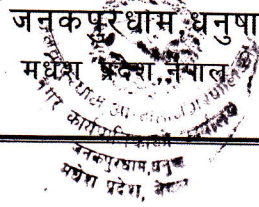 जनकपुरधाम, धनुषा
मधेश प्रदेश, नेपाल
नगर कार्यपालिकाको कार्यालय
जनकपुरधाम, धनुषा
मधेश प्रदेश, नेपाल